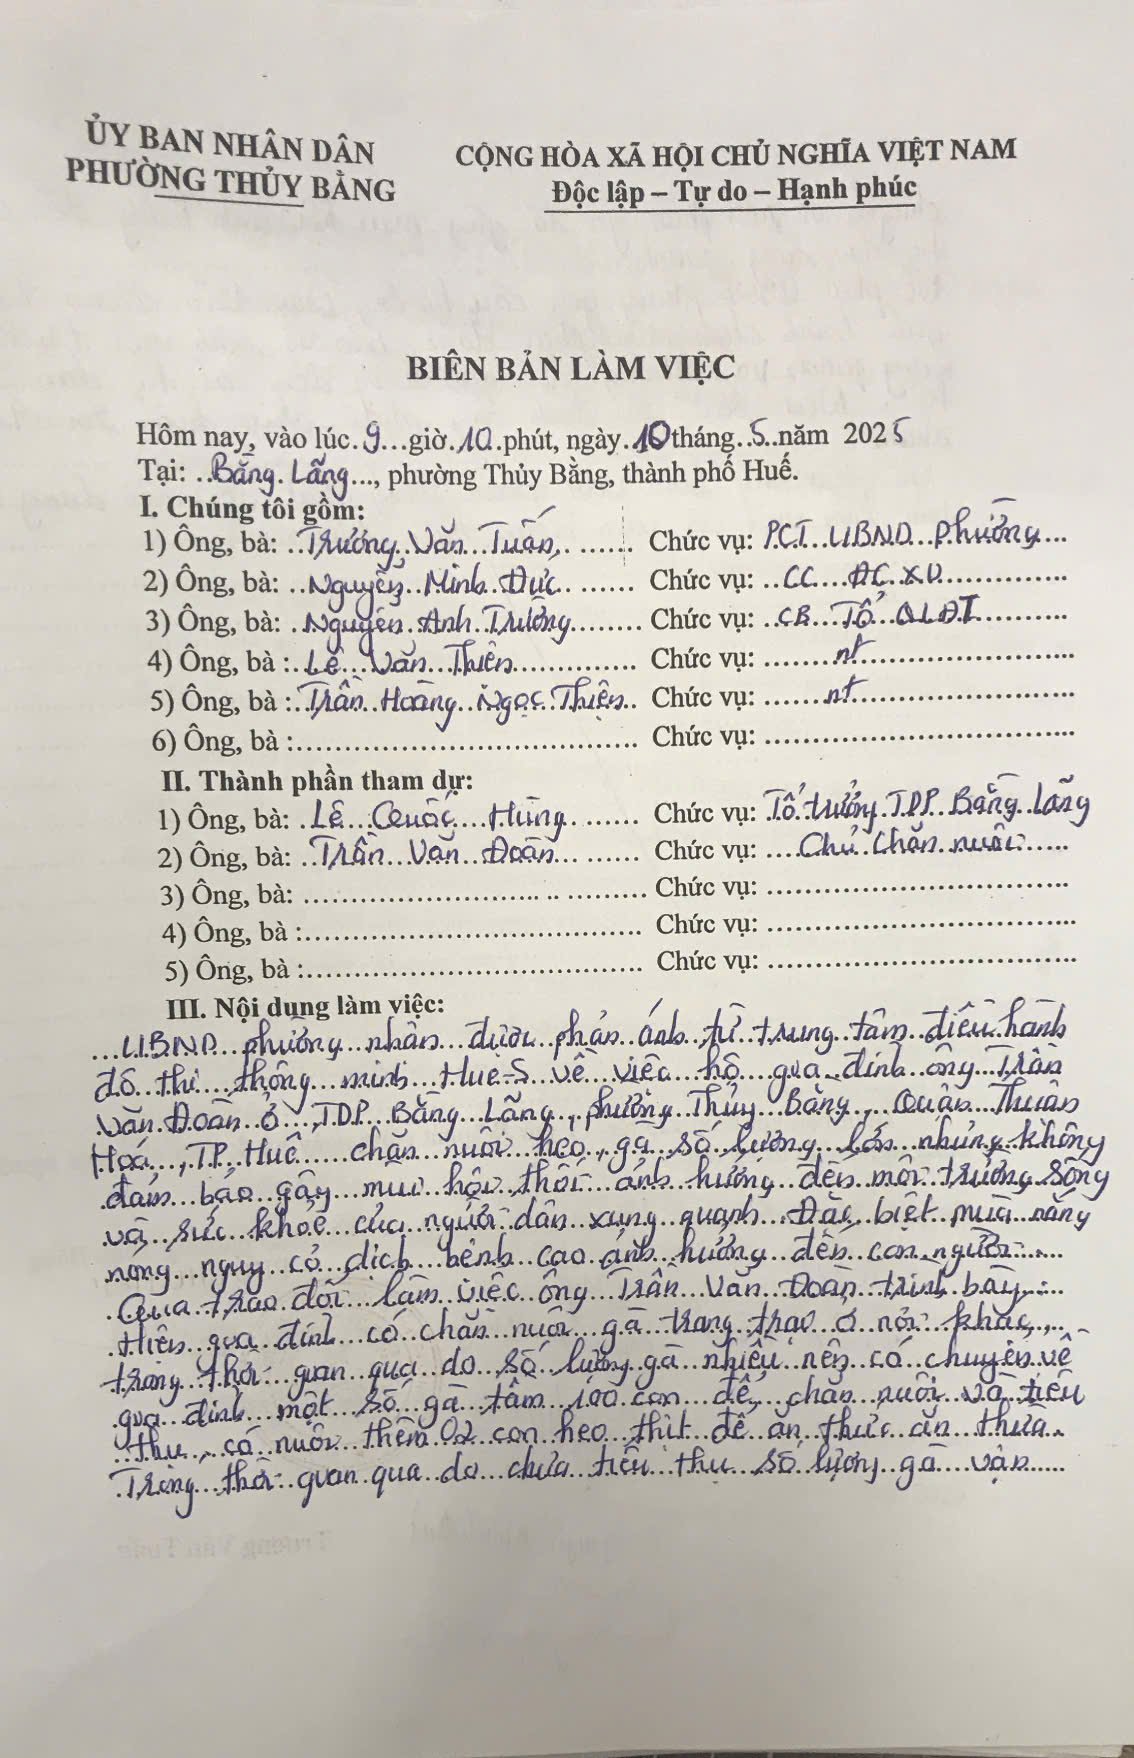 ỦY BAN NHÂN DÂN
PHƯỜNG THỦY BẰNG
CỘNG HÒA XÃ HỘI CHỦ NGHĨA VIỆT NAM
Độc lập – Tự do – Hạnh phúc
BIÊN BẢN LÀM VIỆC
Hôm nay, vào lúc 9 giờ 10 phút, ngày 10 tháng 5 năm 2025
Tại: Bằng Lãng, phường Thủy Bằng, thành phố Huế.
I. Chúng tôi gồm:
1) Ông, bà: Trương Văn Tuấn Chức vụ: P.CT UBND phường
2) Ông, bà: Nguyễn Minh Đức Chức vụ: CC ĐC.XD
3) Ông, bà: Nguyễn Anh Trường Chức vụ: CB Tổ QLĐT
4) Ông, bà : Lê Văn Thiên Chức vụ: nt
5) Ông, bà : Trần Hoàng Ngọc Thiện Chức vụ: nt
6) Ông, bà : Chức vụ:
II. Thành phần tham dự:
1) Ông, bà: Lê Quốc Hùng Chức vụ: Tổ trưởng TDP Bằng Lãng
2) Ông, bà: Trần Văn Đoàn Chức vụ: Chủ chăn nuôi
3) Ông, bà: Chức vụ:
4) Ông, bà : Chức vụ:
5) Ông, bà : Chức vụ:
III. Nội dung làm việc:
UBND phường nhận được phản ánh từ trung tâm điều hành
đô thị thông minh Hue-S về việc hộ gia đình ông Trần
Văn Đoàn ở, TDP Bằng Lãng, phường Thủy Bằng, Quận Thuận
Hoá, TP Huế chăn nuôi heo, gà số lượng lớn nhưng không
đảm bảo gây mùi hôi thối ảnh hưởng đến môi trường sống
và sức khoẻ của người dân xung quanh. Đặc biệt mùa nắng
nóng nguy cơ dịch bệnh cao ảnh hưởng đến con người.
Qua trao đổi làm việc ông Trần Văn Đoàn trình bày:
Hiện gia đình có chăn nuôi gà trang trại ở nơi khác,
trong thời gian qua do số lượng gà nhiều nên có chuyển về
gia đình một số gà tầm 100 con để chăn nuôi và tiêu
thụ, có nuôi thêm 02 con heo thịt để ăn thức ăn thừa.
Trong thời gian qua do chưa tiêu thụ số lượng gà vận